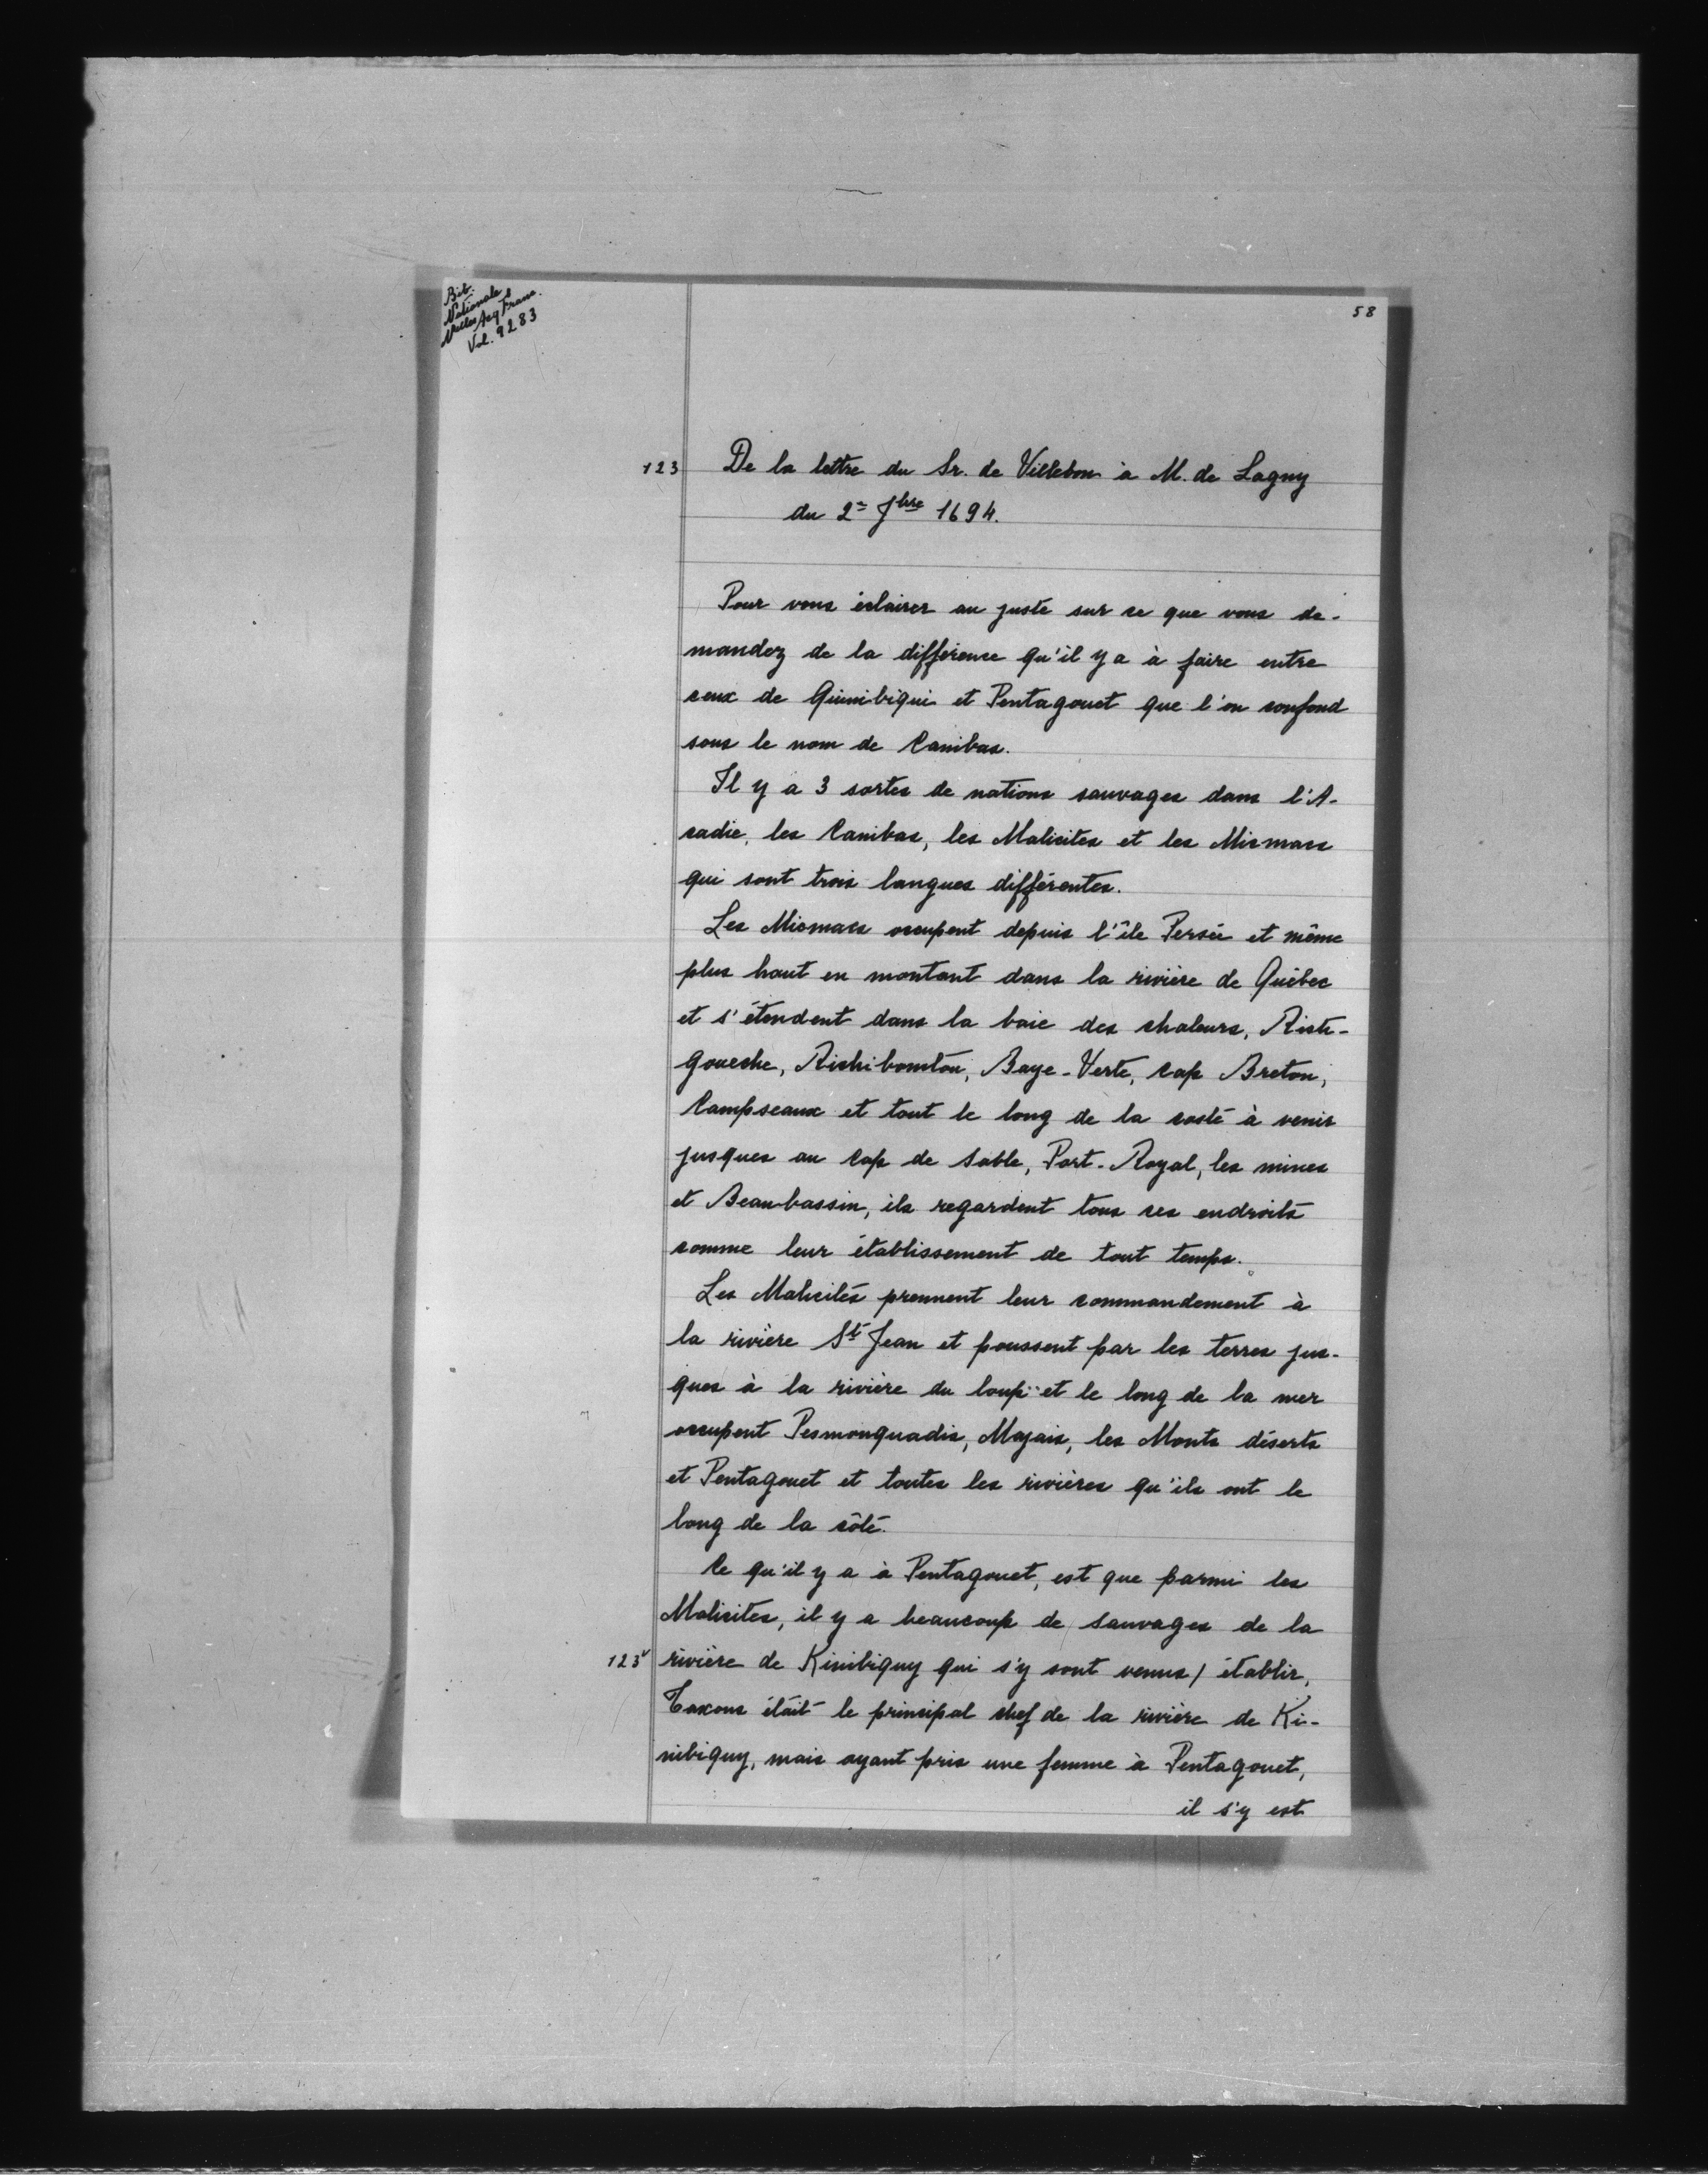 Bib.
Nationale
Nelles Acq Franc.
Vol. 9283
58
123 De la lettre du Sr. de Villebon à M. de Lagny
du 2e 7bre 1694.
Pour vous éclairer au juste sur ce que vous de-
mandez de la différence qu'il y a à faire entre
ceux de Quinibiqui et Pentagouet que l'on confond
sous le nom de Canibas.
Il y a 3 sortes de nations sauvages dans l'A-
cadie, les Canibas, les Malicites et les Micmacs
qui sont trois langues différentes.
Les Micmacs occupent depuis l'île Persée et même
plus haut en montant dans la rivière de Québec
et s'étendent dans la baie des chaleurs, Risti-
goueche, Richiboucton, Baye-Verte, cap Breton,
Campseaux et tout le long de la coste à venir
jusques au cap de Sable, Port-Royal, les mines
et Beaubassin, ils regardent tous ces endroits
comme leur établissement de tout temps.
Les Malicites prennent leur commandement à
la rivière St Jean et poussent par les terres jus-
ques à la rivière du loup et le long de la mer
occupent Pesmonquadis, Majais, les Monts déserts
et Pentagouet et toutes les rivières qu'ils ont le
long de la côte.
Ce qu'il y a à Pentagouet, est que parmi les
Malicites, il y a beaucoup de sauvages de la
123v rivière de Kinibiguy qui s'y sont venus / établir,
Taxous était le principal chef de la rivière de Ki-
nibiguy, mais ayant pris une femme à Pentagouet,
il s'y est